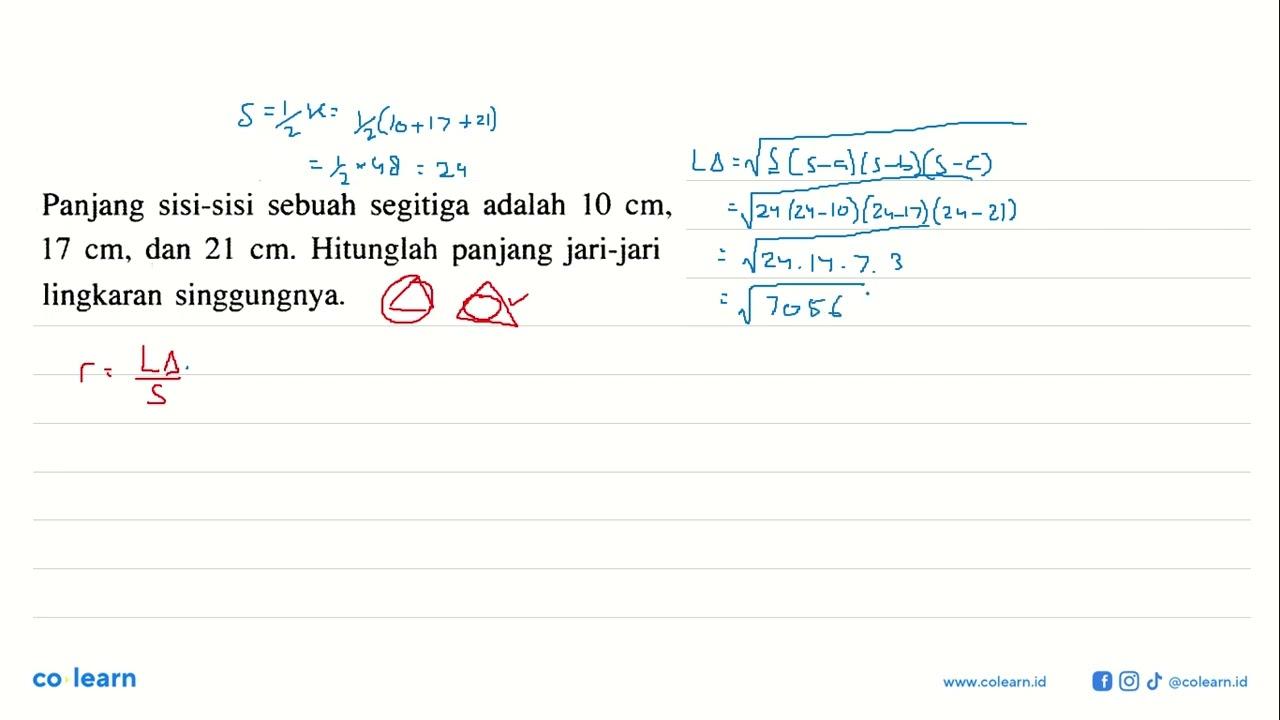 S = 1/2 K = 1/2 (10+17+21)
= 1/2 × 48 = 24
Panjang sisi-sisi sebuah segitiga adalah 10 cm,
17 cm, dan 21 cm. Hitunglah panjang jari-jari
lingkaran singgungnya.
r = LΔ/S
LΔ = √S(S-a)(S-b)(S-c)
= √24(24-10)(24-17)(24-21)
= √24.14.7.3
= √7056
co learn
www.colearn.id
@colearn.id